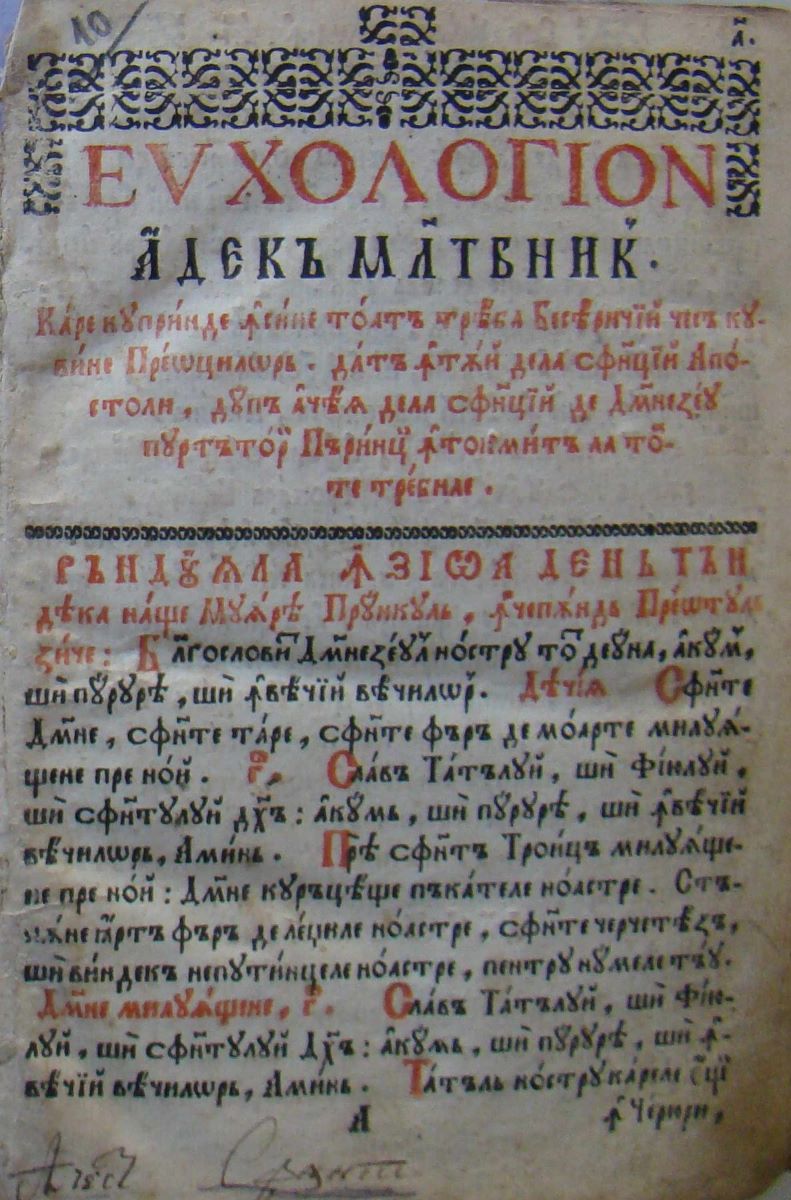 10
а҃.
ЕѴХОЛОГІОН
А҆ДЕКЪ МЛ҃ТВНИК꙼.
Ка́ре купри́нде ꙟ҆си́не то́атъ тре́ба Бесѣ́ричїй чесъ ку-
ви́не Пре́ѡцилѡрь. да́тъ ꙟ҆тѫ́й дела сфи҃нцїй Апо́-
столи, ду́пъ а҆чѣ́ѧ дела сфи҃нцїй де Дм҃незе́у
пуртъто́рї Пъри́нцї ꙟ҆токми́тъ ла то́-
те тре́биле.
РЪНДꙊѦЛА ꙞЗІѠА ДЕНЬТЪИ
дѣ́ка на́ще Муѧ́рѣ Пру́нкуль, ꙟ҆чепѫ́ндь Прео́туль
зи́че: Бл҃гослови́т Дм҃незе́ул но́стру тоⷮ деу́на, а҆куⷨ,
шѝ пу́рурѣ, шѝ ꙟ҆вѣ́чїй вѣ́чилѡр. Дѣчі́ѧ Сфи҃нте
Дм҃не, сфи҃нте та́ре, сфи҃нте фъръ де мо́арте милуѧ́-
щене пре но́й. г҃. Сла́въ Та́тълуй, шѝ Фі́юлуй,
шѝ сфи҃нтулуй дх҃ъ: а҆ку́мь, шѝ пу́рурѣ, шѝ ꙟ҆вѣ́чїй
вѣ́чилѡрь, Ами́нь. Прѣ́ сфи҃нтъ Трои́цъ милуѧ́ще-
не пре но́й: Дм҃не куръцѣ́ще пъка́теле но́астре. Стъ-
пѫ́не ꙗ҆́ртъ фъръ де ле́циле но́астре, сфи҃нте черчетѣ́зъ,
шѝ ви́ндекъ непути́нцеле но́астре, пентру ну́меле тъ́у.
Дм҃не милуѧ́щене, г҃. Сла́въ Та́тълуй, шѝ Фі́ю-
луй, шѝ сфи҃нтулуй Дх҃ъ: а҆ку́мь, шѝ пу́рурѣ, шѝ ꙟ҆-
вѣ́чїй вѣ́чилѡрь, Ами́нь. Та́тъль но́стру ка́реле є҆́щї
А ꙟ҆ Че́рюри,